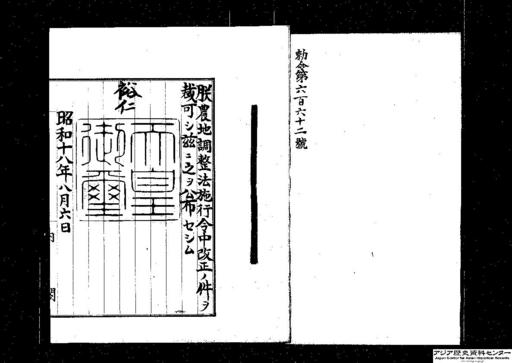 勅令第六百六十二號
朕農地調整法施行令中改正ノ件ヲ
裁可シ茲ニ之ヲ公布セシム
裕仁
天皇御璽
昭和十八年八月六日
内閣
アジア歴史資料センター
Japan Center for Asian Historical Records